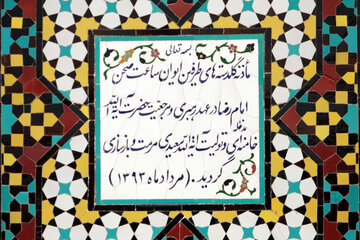 بسمه تعالی
مأذنه گلدسته های طرفین ایوان ساعت صحن
امام رضا در عهد رهبری و مرجعیت حضرت آیة الله
خامنه ای مدظله و تولیت آیة الله مرمت و بازسازی
گردید . (مرداد ماه ۱۳۹۳)